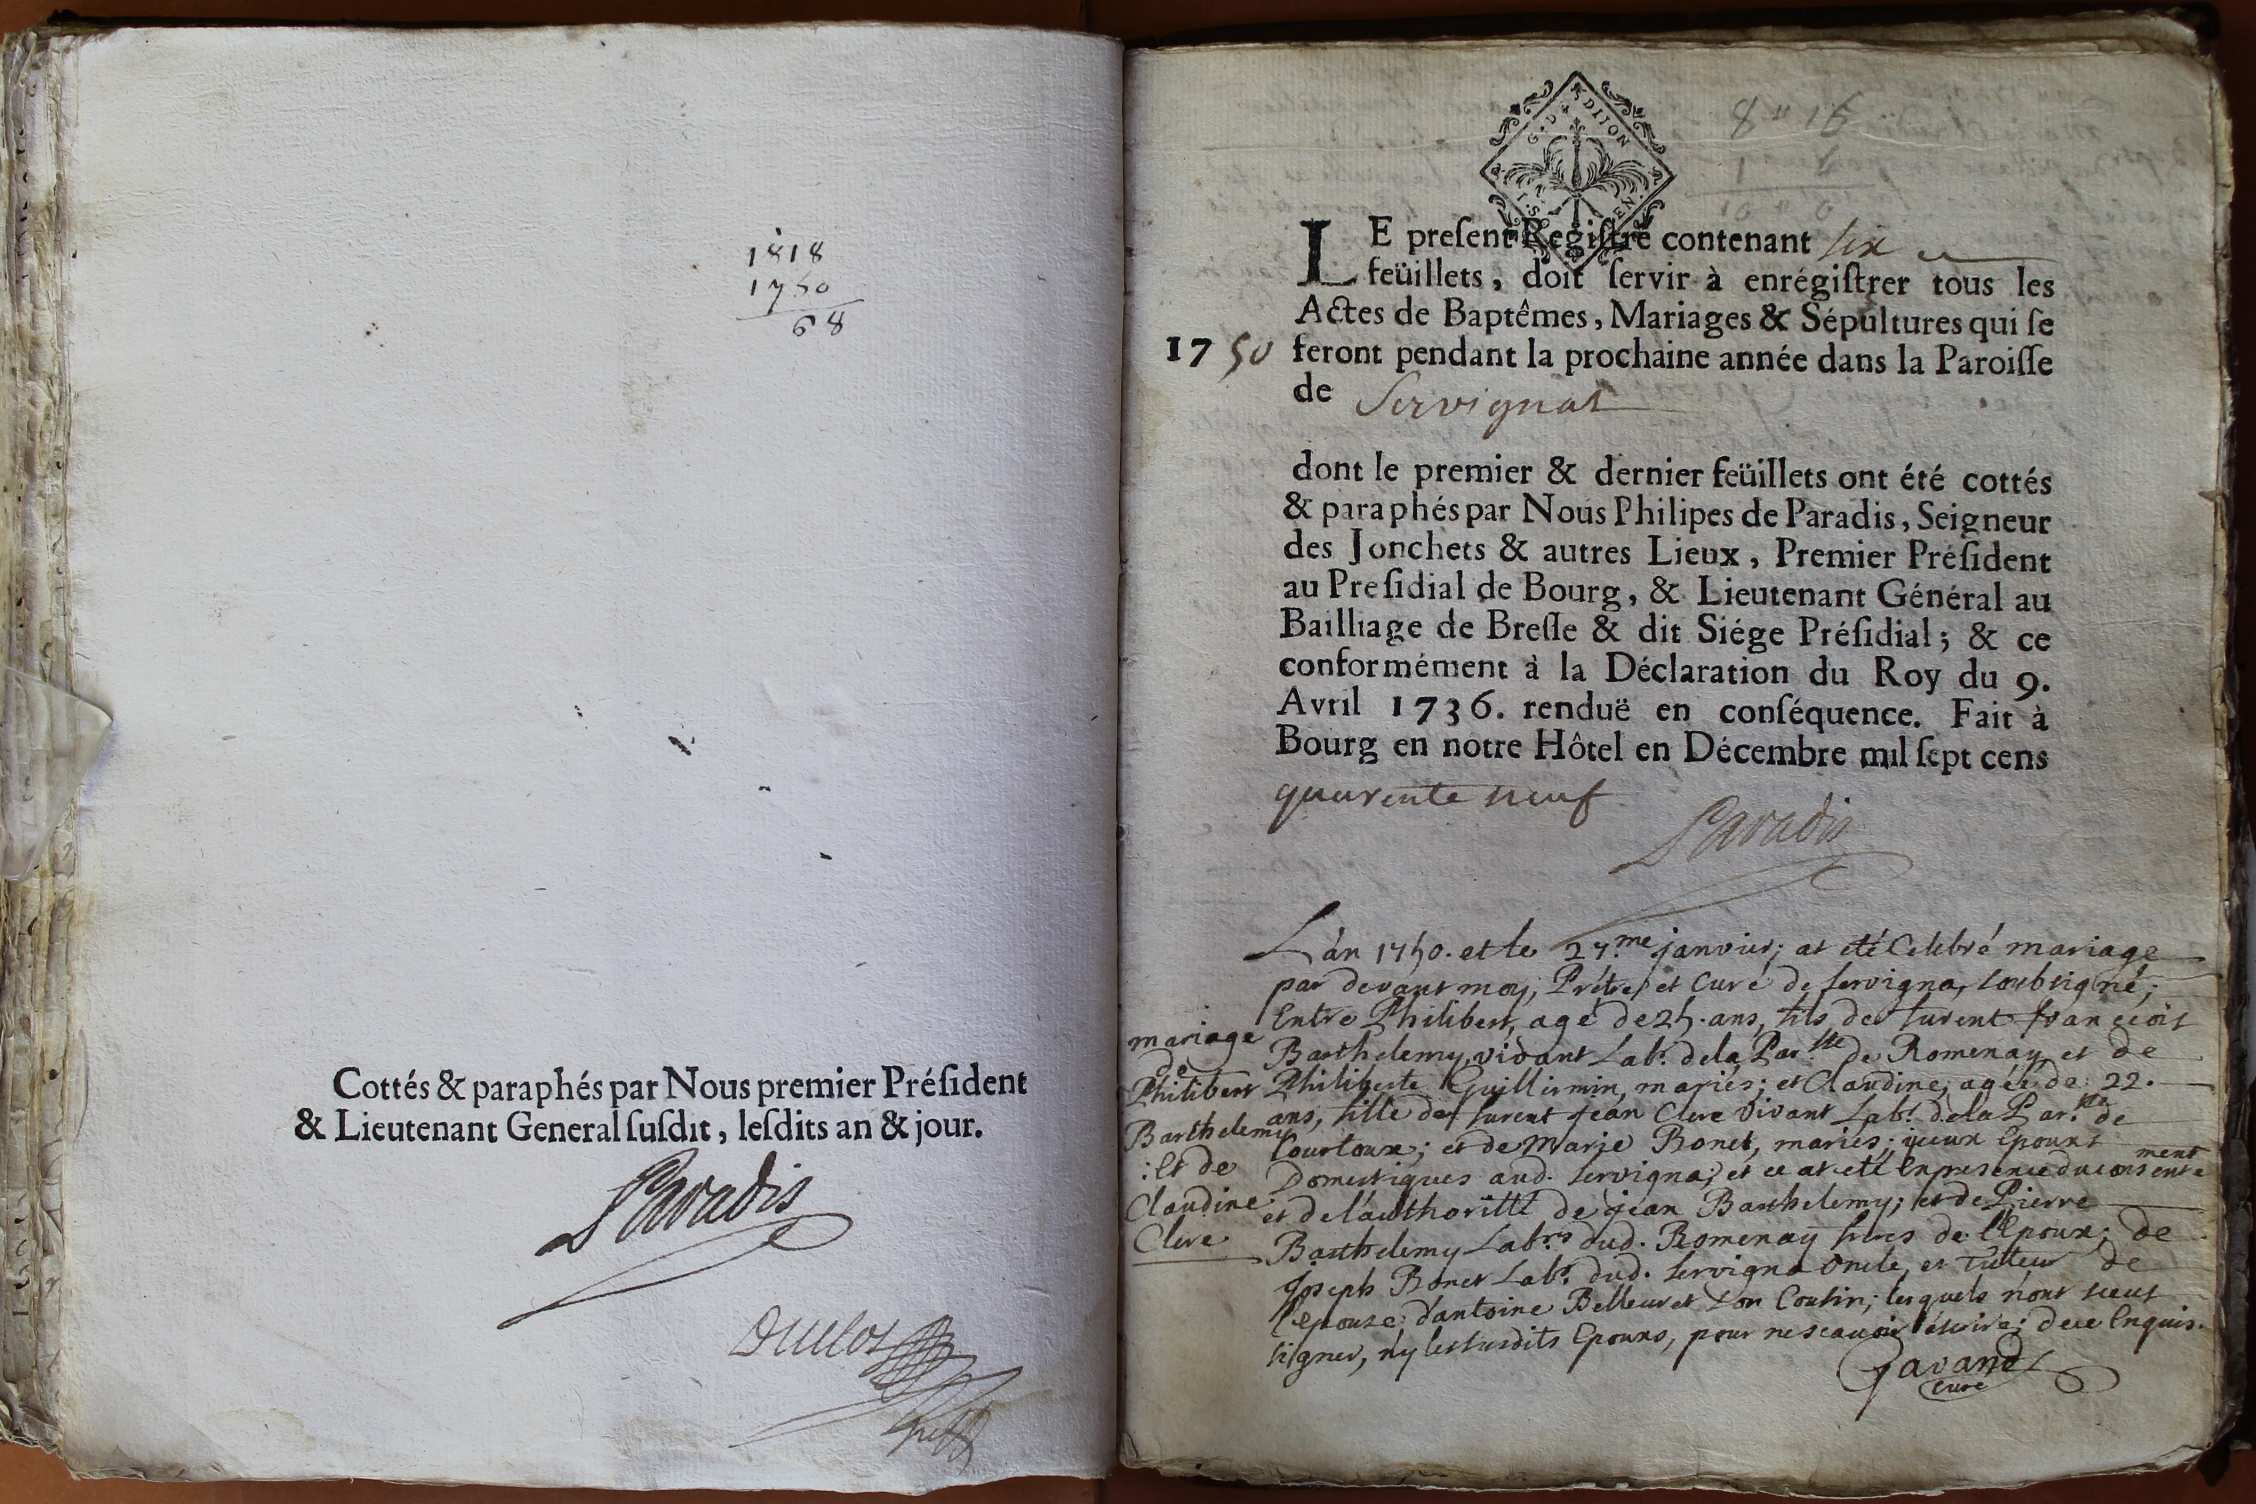 1818
1750
68
Cottés & paraphés par Nous premier Préſident
& Lieutenant General ſuſdit, leſdits an & jour.
Paradis
Duclos
8 # 16
1 4
10 # 0
G. D. DIJON
LE preſent Regiſtre contenant six
feüillets, doit ſervir à enrégiſtrer tous les
Actes de Baptêmes, Mariages & Sépultures qui ſe
1750 feront pendant la prochaine année dans la Paroiſſe
de Servignat
dont le premier & dernier feüillets ont été cottés
& paraphés par Nous Philipes de Paradis, Seigneur
des Jonchets & autres Lieux, Premier Préſident
au Preſidial de Bourg, & Lieutenant Général au
Bailliage de Breſſe & dit Siége Préſidial; & ce
conformément à la Déclaration du Roy du 9.
Avril 1736. renduë en conſéquence. Fait à
Bourg en notre Hôtel en Décembre mil ſept cens
quarente neuf
Paradis
mariage
de
Philibert
Barthelemy
: Et de
Claudine
Clere
L'an 1750. et le 27.me janvier; at eté Celebré mariage
par devant moy, Prétre, et Curé de servigna, soubsigné;
Entre Philibert, agé de 25. ans, fils de furent françcois
Barthelemy, vivant Lab.r de la Par.sse de Romenay, et de
Philiberte Guillermin, mariés; et Claudine, agée de 22.
ans, fille de furent jean Clere vivant Lab.r de la Par.sse de
Courtoux; et de Marie Bonet, mariés; iceux Epoux
Domestiques aud. servigna; et ce at eté En presence du consentement
et de l'authoritté de jean Barthelemy; et de Pierre
Barthelemy Lab.rs dud. Romenay freres de l'Epoux; de
joseph Bonet Lab.r dud. servigna Oncle, et Tutteur de
l'epouse; d'antoine Belleuret son Cousin; lesquels n'ont sceut
signer, n'y les susdits Epoux, pour ne scavoir écrire; de ce Enquis.
Javand
Curé